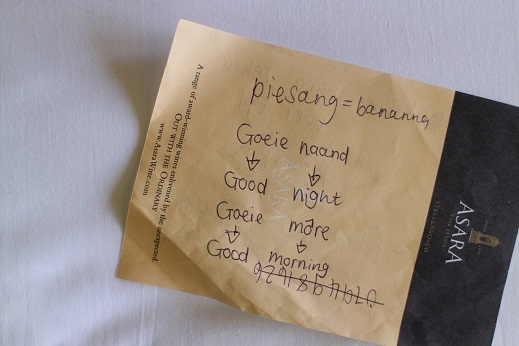 piesang = bananna
Goeie naand
Good night
Goeie môre
Good morning
A range of award-winning wines enlivened by the unexpected.
OUT WITH THE ORDINARY
www.AsaraWine.com
ASARA
ASARA